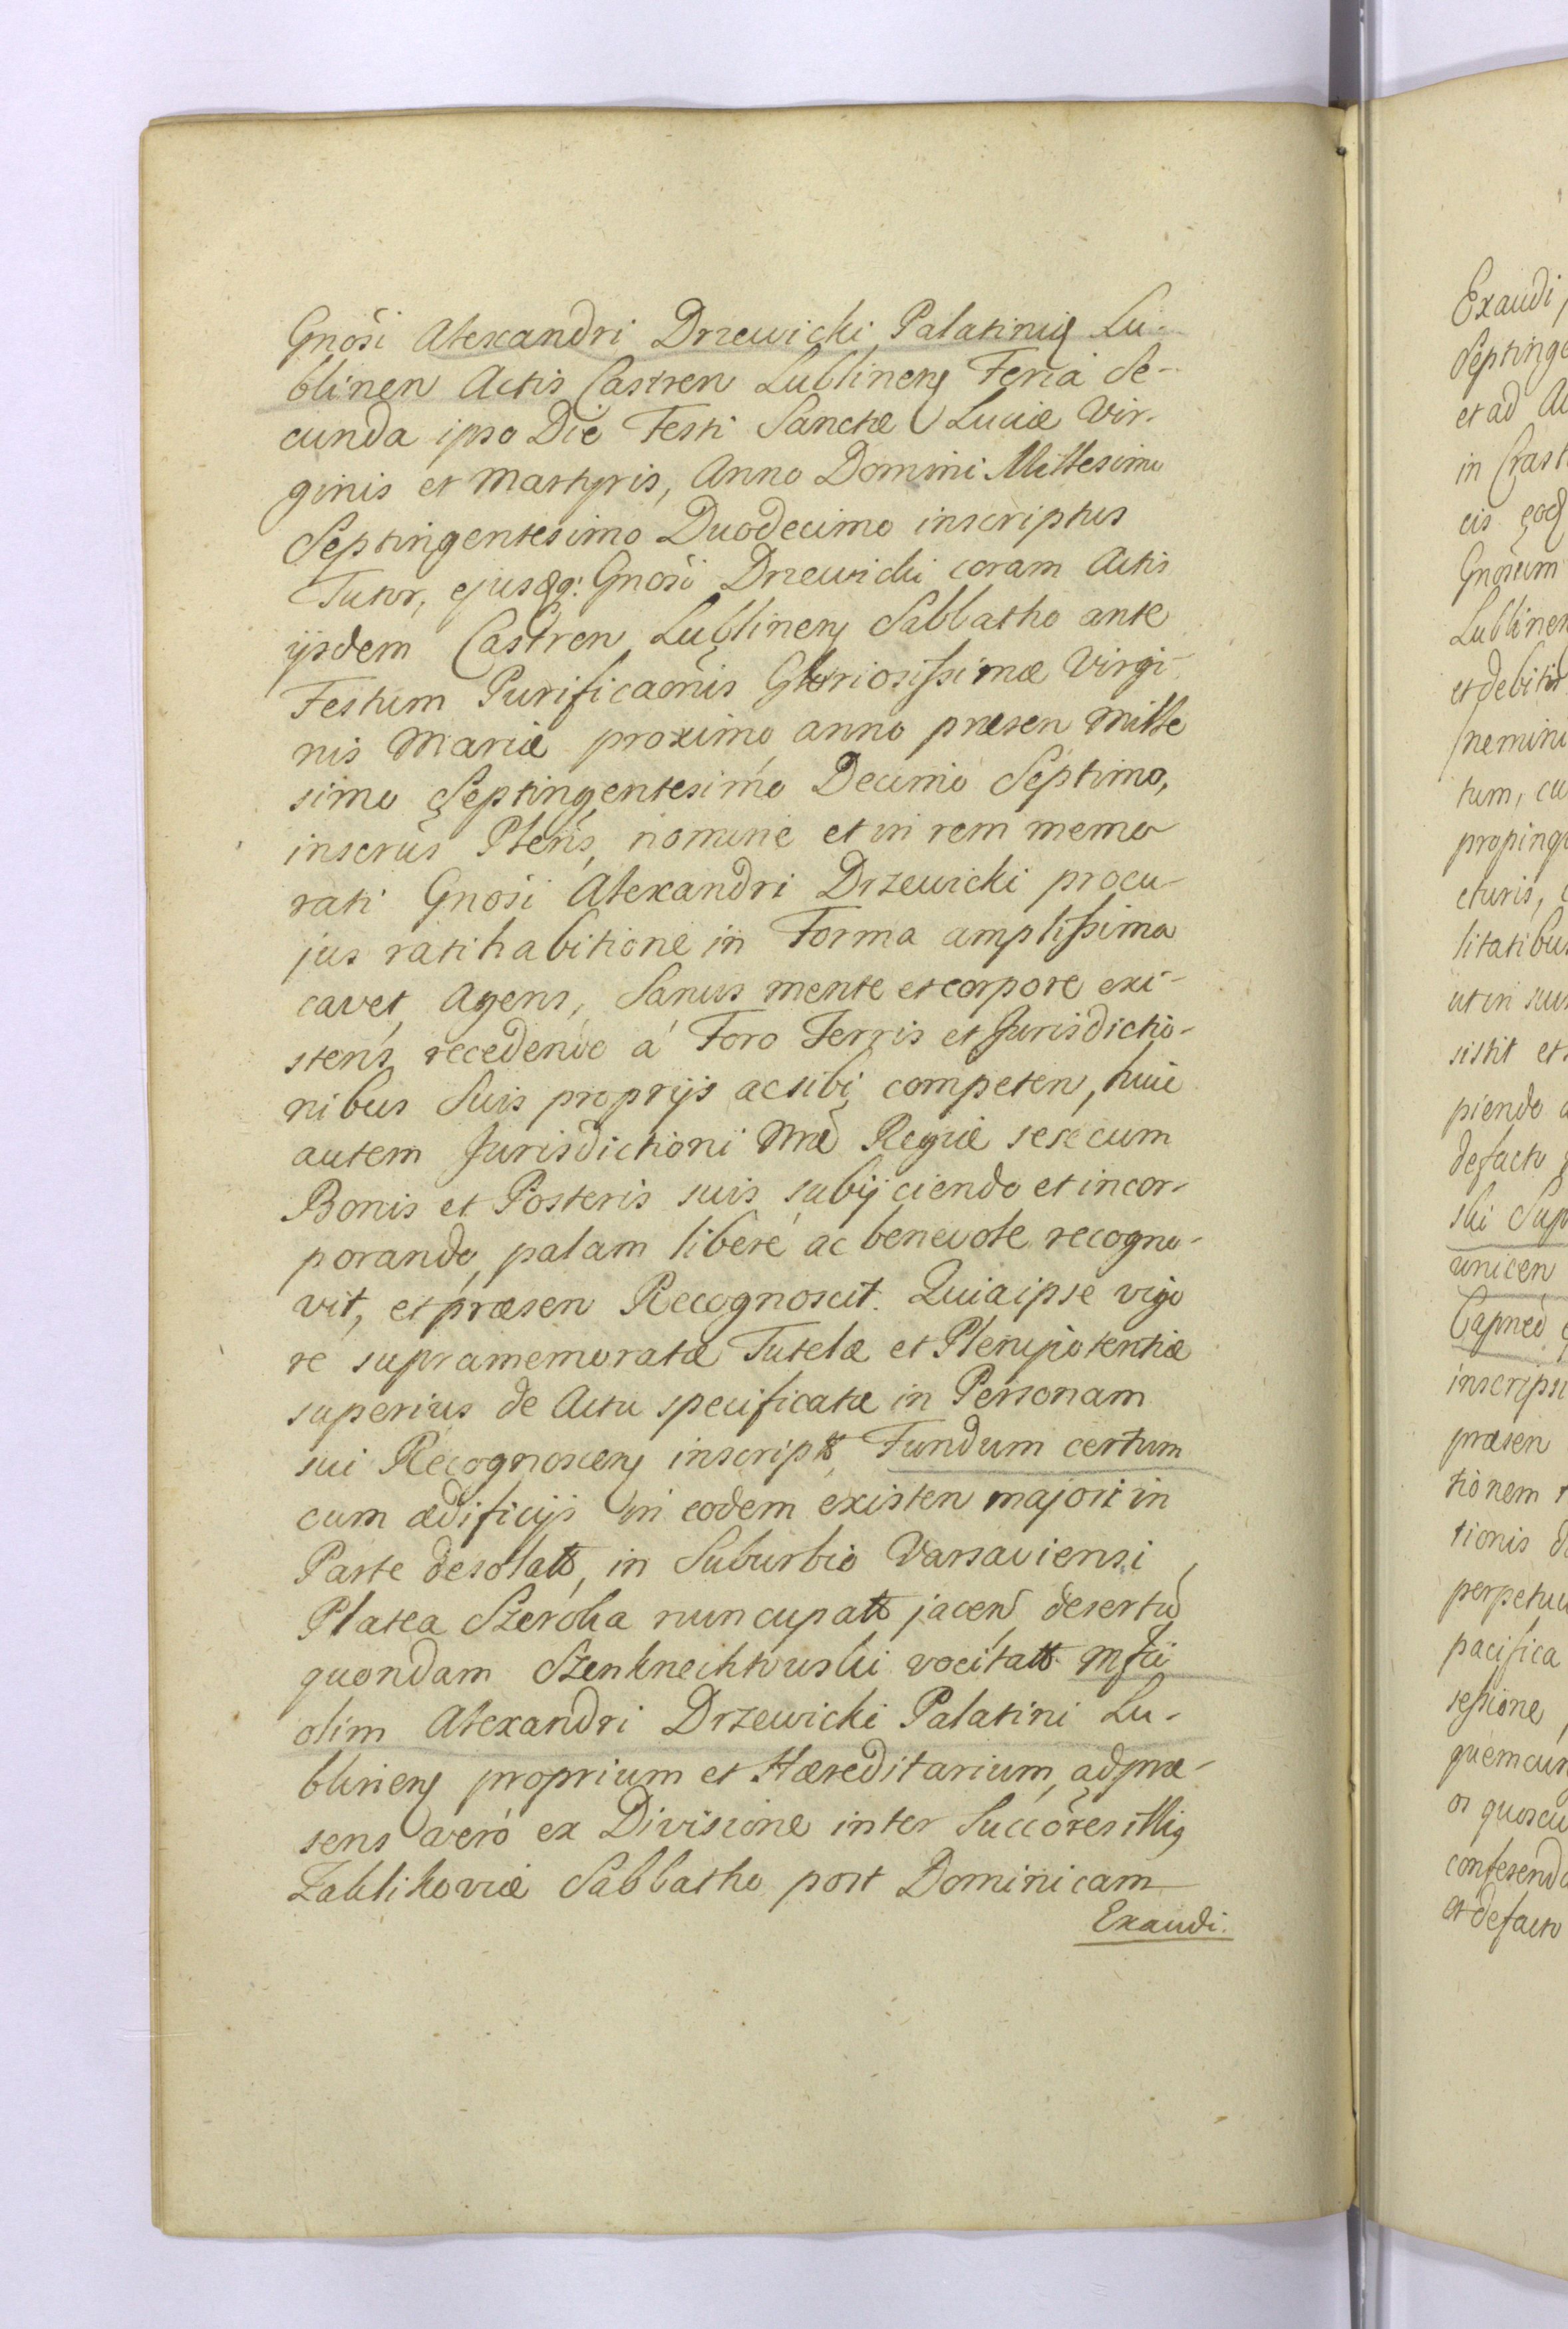 Gnosi Alexandri Drzewicki Palatinis Lu-
blinen Actis Castren Lublinens Feria Se-
cunda ipso Die Festi Sanctæ Luciæ Vir-
ginis et Martyris, Anno Domini Millesimo
Septingentesimo Duodecimo inscriptus
Tutor, ejusdq: Gnosi Drzewicki coram Actis
ijsdem Castren Lublinens Sabbatho ante
Festum Purificaonis Gloriosissimæ Virgi-
nis Mariæ proximo, anno præsen Mille
simo Septingentesimo Decimo Septimo,
inscrus Plens, nomine et in rem memo
rati Gnosi Alexandri Drzewicki pro cu-
jus ratihabitione in Forma amplissima
cavet, agens, Sanus mente et corpore exi-
stens, recedendo á Foro Terris et Jurisdictio-
nibus Suis proprijs ac sibi competen, huic
autem Jurisdictioni Regiæ sese cum
Bonis et Posteris suis subijciendo et incor-
porando, palam liberé ac benevole recogno-
vit, et præsen Recognoscit. Quia ipse vigo
re supramemoratæ Tutelæ et Plenipotentiæ
superius de Actu specificatæ in Personam
sui Recognoscens inscript, Fundum certum
cum ædificijs in eodem existen majori in
Parte desolatt, in Suburbio Varsaviensi,
Platea Szeroka nuncupatt jacen, desertu
quondam Szenknechtowski vocitatt Mfci
olim Alexandri Drzewicki Palatini Lu-
blinens proprium et Hæreditarium, ad præ-
sens veró ex Divisione inter Succores illis
Zaklikoviæ Sabbatho post Dominicam
Exaudi.
Exaudi,
Septinge
et ad A
in Crast
cis
Gnosum
Lublinen
et debitor
nemini
tum, cu
propinq
cturis,
litatibus
uti in sui
sistit et
piendo a
defactu
ski Sup
unicen
inscripsi
præsen
tionem
tionis d
perpetu
pacifica
sessione,
quemcun
os quoscu
conferendo
et defactu